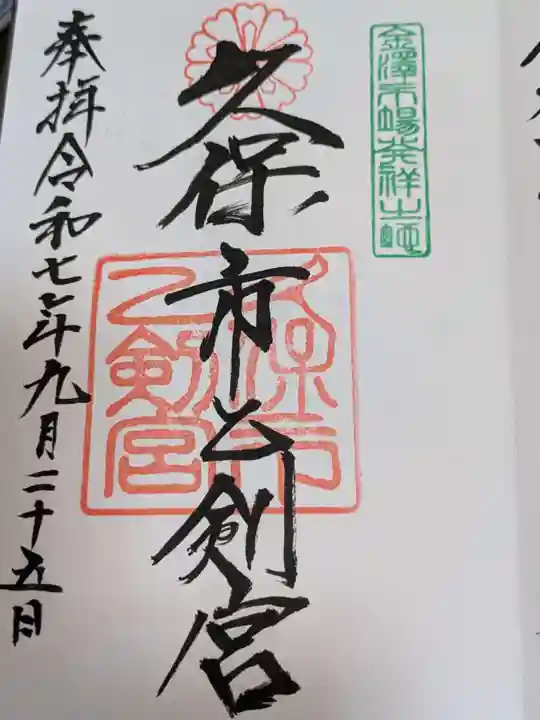 金澤市場発祥之地
久保市乙剣宮
久保市
乙剣宮
奉拝令和七年九月二十五日